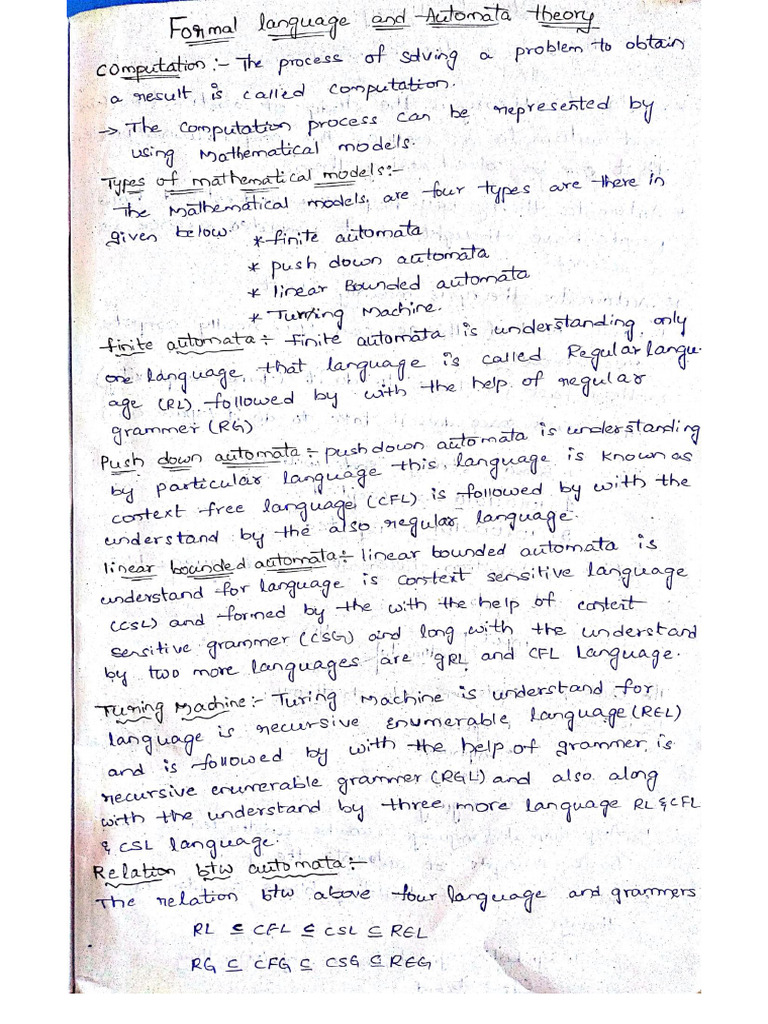 Formal language and Automata theory
Computation:- The process of solving a problem to obtain
a result, is called computation.
→ The computation process can be represented by
using Mathematical models.
Types of mathematical models:-
The Mathematical models, are four types are there in
given below. * finite automata
* push down automata
* linear Bounded automata
* Turing Machine.
finite automata:- finite automata is understanding only
one language, that language is called Regular langu-
age (RL) followed by with the help of regular
grammer (RG)
Push down automata:- pushdown automata is understanding
by particular language this language is known as
context free language (CFL) is followed by with the
understand by the also regular language.
linear bounded automata:- linear bounded automata is
understand for language is context sensitive language
(CSL) and formed by the with the help of context
sensitive grammer (CSG) and long with the understand
by two more languages are RL and CFL Language.
Turing Machine:- Turing Machine is understand for
language is recursive enumerable language (REL)
and is followed by with the help of grammer is
recursive enumerable grammer (RGL) and also along
with the understand by three more language RL & CFL
& CSL language.
Relation btw automata:-
The relation btw above four language and grammers
RL ⊆ CFL ⊆ CSL ⊆ REL
RG ⊆ CFG ⊆ CSG ⊆ REG